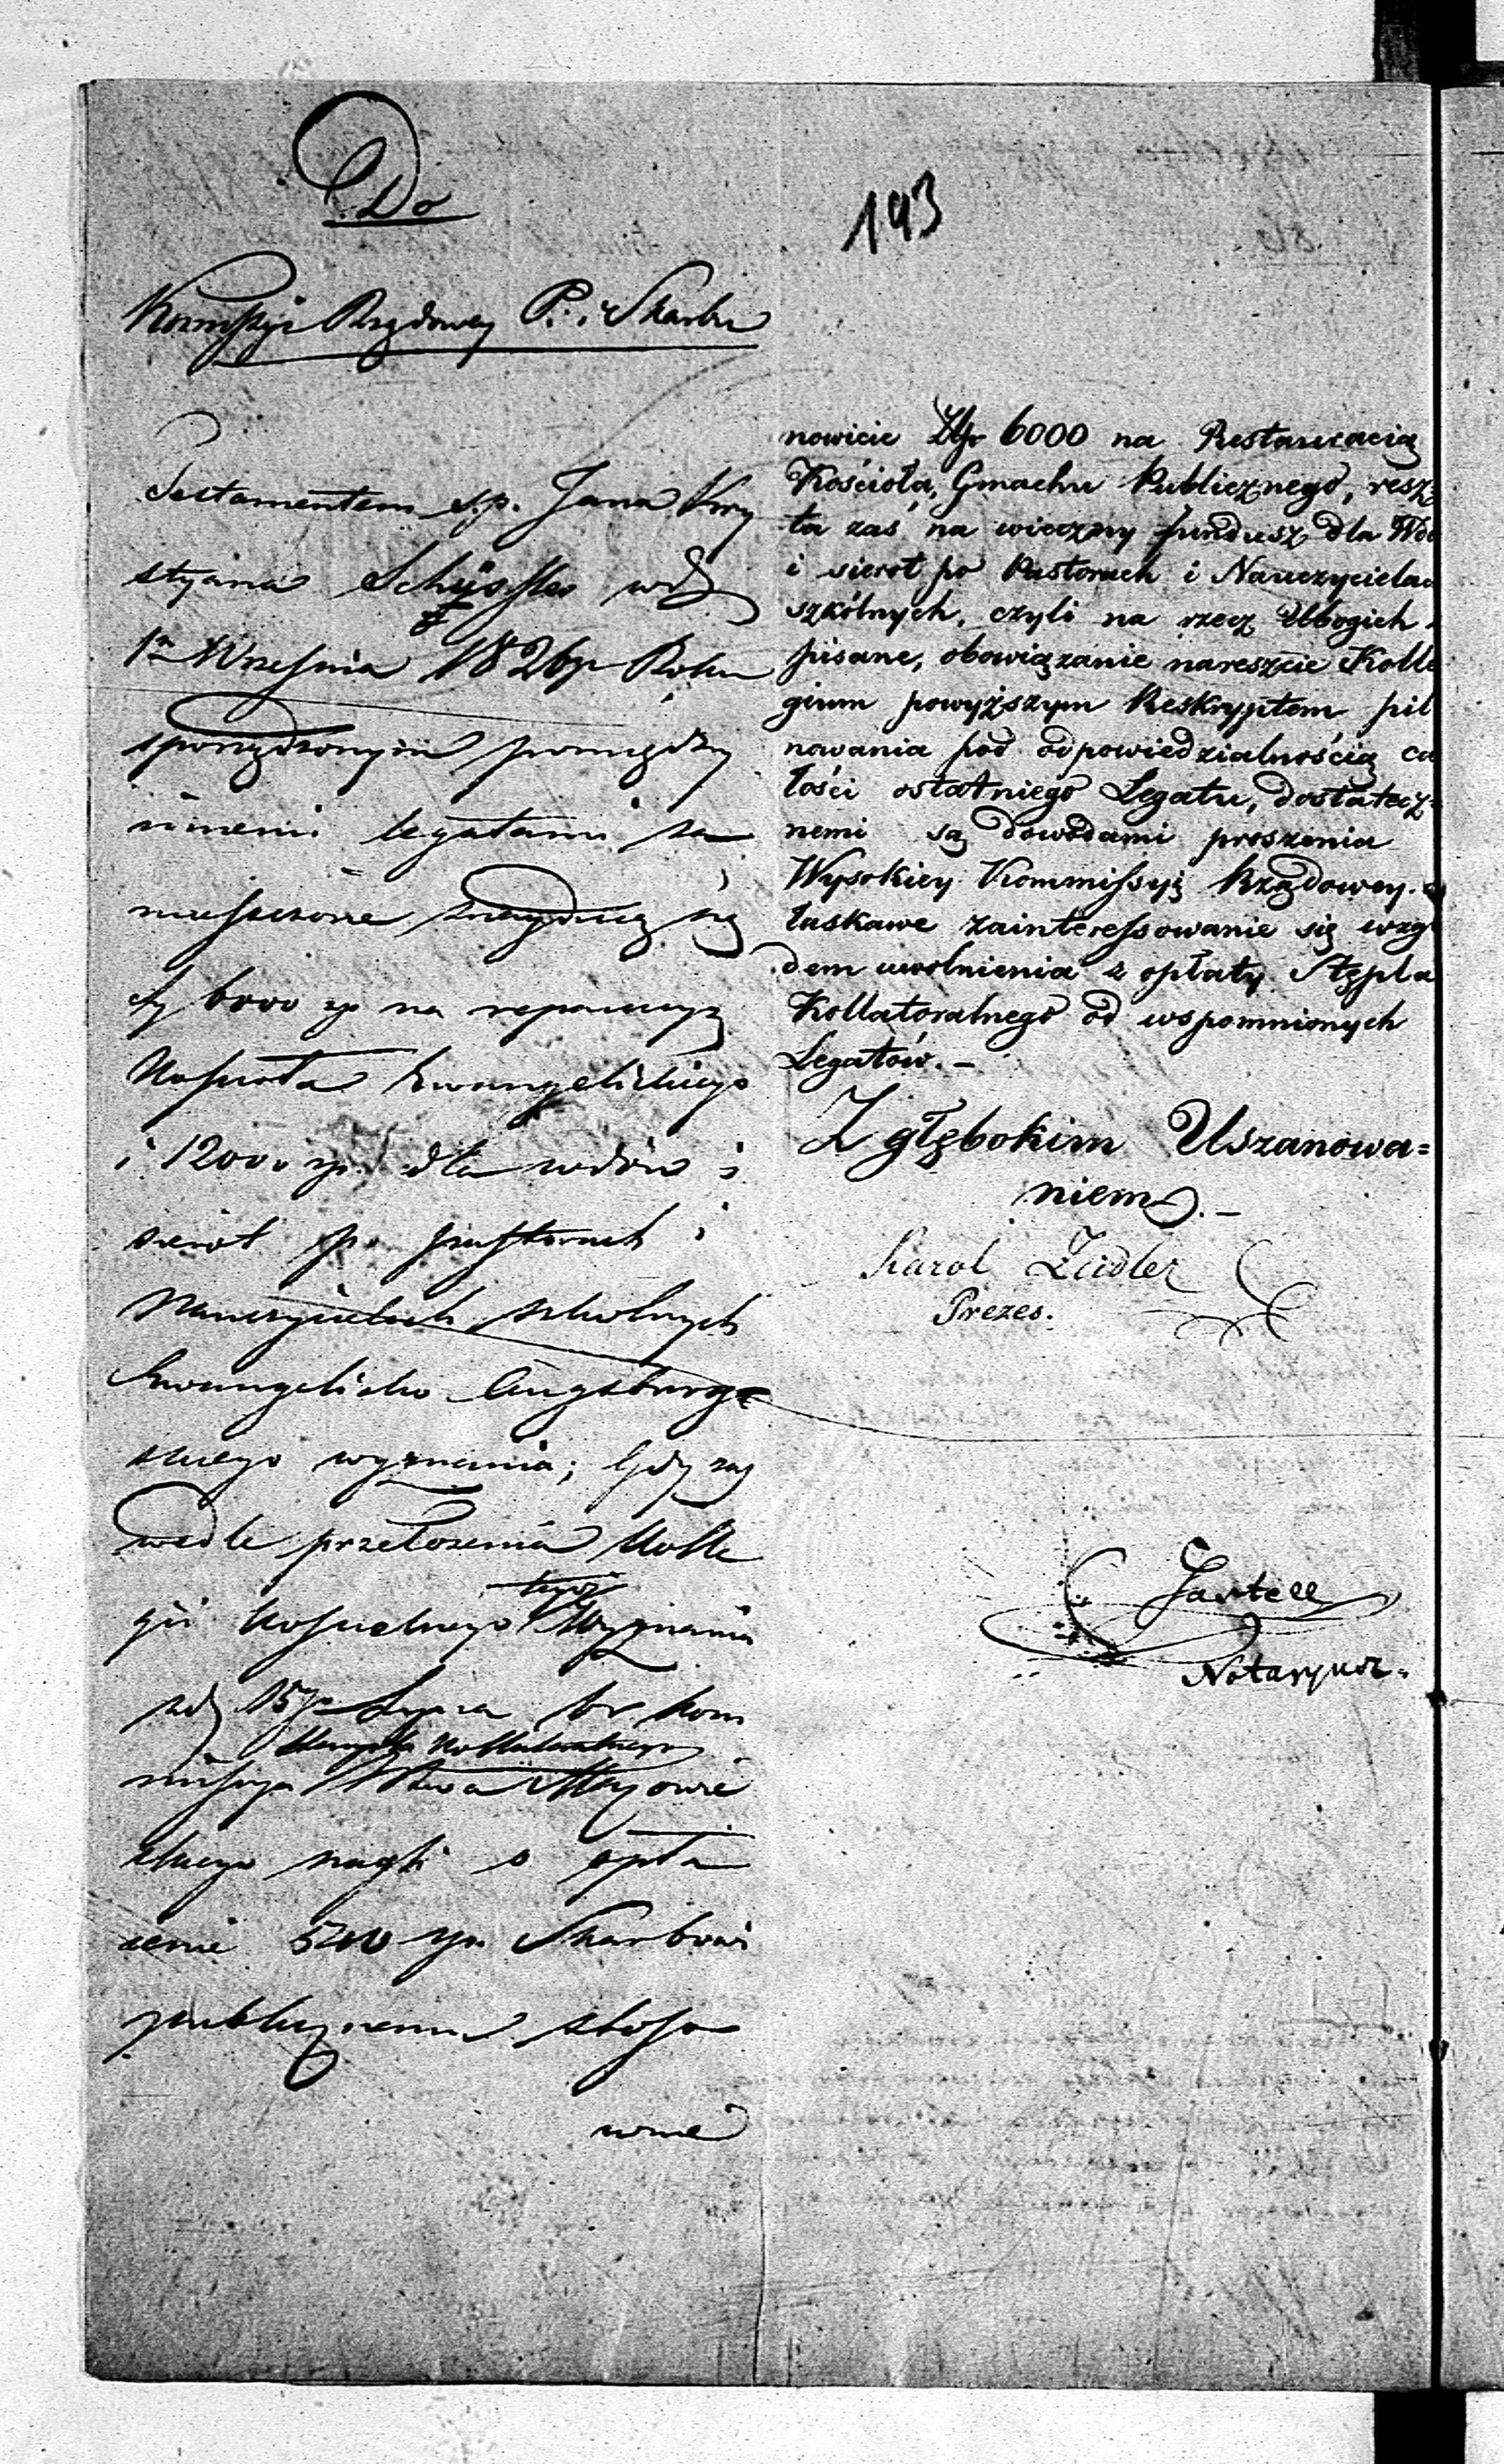 193
Do
Kommissyi Rządowey P. i Skarbu
Testamentem s.p. Jana Kry
styana Schüssler w d
1go Września 1826 r Roku
sporządzonym pomiędzy
innemi legatami za
mieszczone znayduią się
6000 zp na reparacyą
Kościoła Ewangelickiego
i 12000 zp. dla wdów i
sierot po pastorach i
Nauczycielach szkolnych
Ewangelicko Augsburg
skiego wyznania; Gdy zaś
wedle przełożenia Kolle
tegoż
gii Kościelnego Wyznania
z d 15go Lipca br Kom
Stempla Kollateralnego
missya Wdwa Mazowie
ckiego nagli o opła
cenie zp Skarbowi
publicznemu stoso
wnie
nowicie Złp 6000 na Restauracią
Kościoła, Gmachu Publicznego, resz
ta zaś na wieczny fundusz dla Wdo
i sierot po Pastorach i Nauczycielac
szkólnych, czyli na rzecz Ubogich
pisane, obowiązanie nareszcie Kolle
gium powyższym Reskryptem pil
nowania pod odpowiedzialnością ca
łości ostatniego Legatu, dostatecz=
nemi są dowodami proszenia
Wysokiey Kommissyi Rządowey. o
łaskawe zainteressowanie się wzgl
dem uwolnienia z opłaty Stępla
Kollatoralnego od wspomnionych
Legatów. –
Z głębokim Uszanowa=
niem. –
Karol Zeidler
Prezes.
Notaryusz.